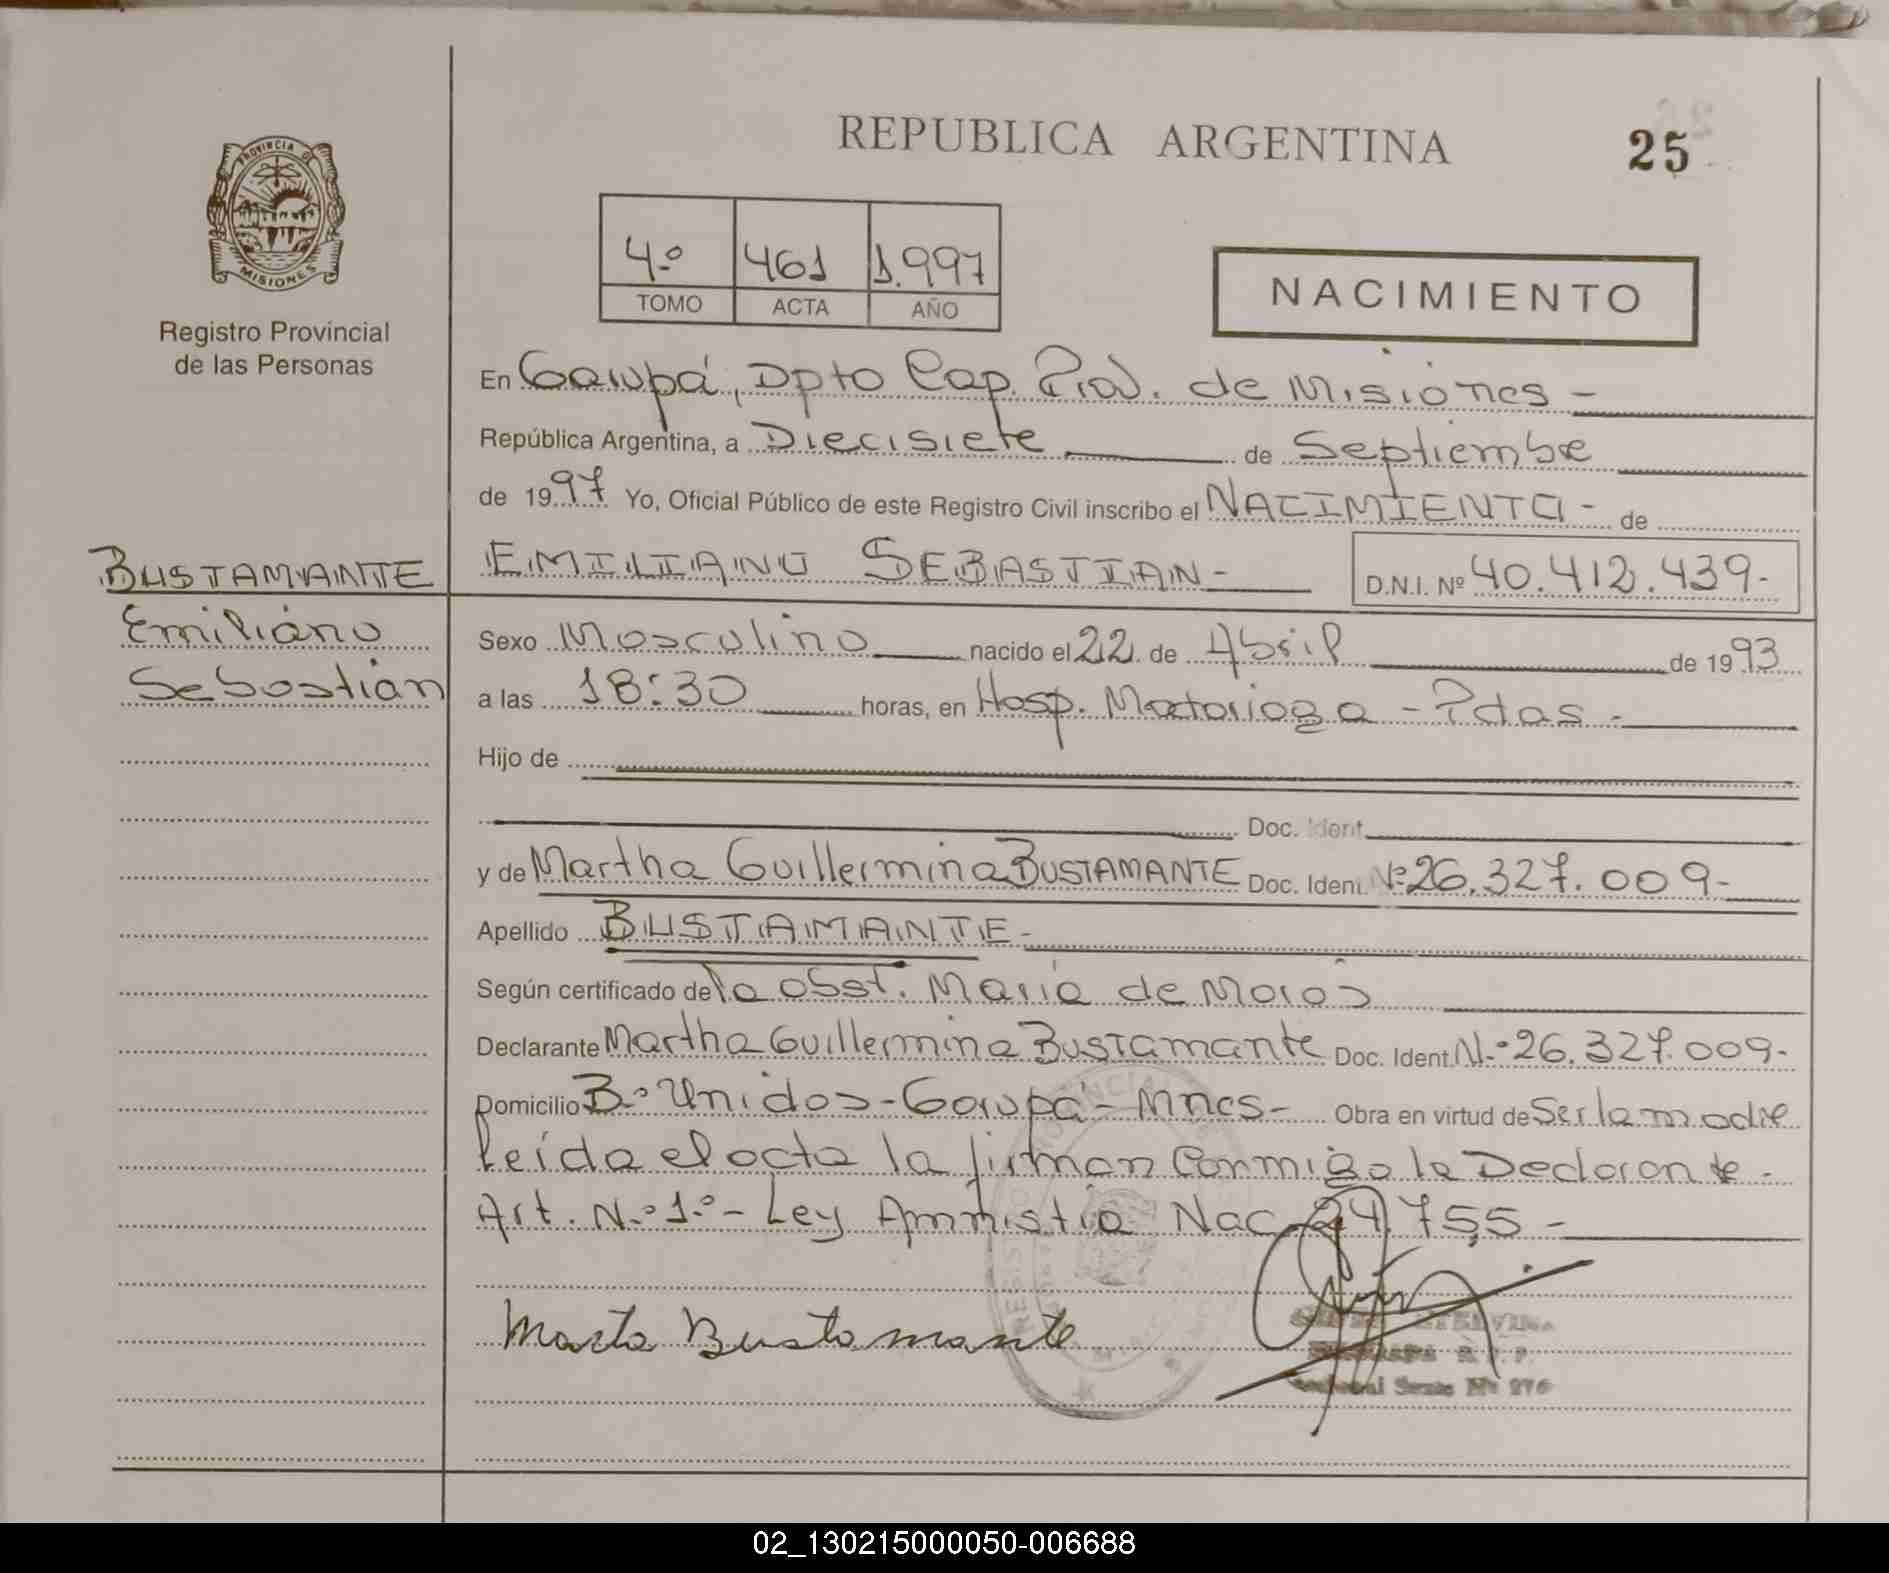 REPUBLICA ARGENTINA
25
PROVINCIA DE
MISIONES
Registro Provincial
de las Personas
4.º 461 1.997
TOMO ACTA AÑO
NACIMIENTO
En Garupá, Dpto Cap. Prov. de Misiones -
República Argentina, a Diecisiete de Septiembre
de 1997 Yo, Oficial Público de este Registro Civil inscribo el NACIMIENTO - de
BUSTAMANTE
Emiliano
Sebastian
EMILIANO SEBASTIAN - D.N.I. Nº 40.412.439-
Sexo Masculino nacido el 22 de Abril de 1993
a las 18:30 horas, en Hosp. Madariaga - Pdas -
Hijo de
Doc. Ident.
y de Martha Guillermina BUSTAMANTE Doc. Ident. Nº 26.327.009-
Apellido BUSTAMANTE-
Según certificado de la obst. Maria de
Declarante Martha Guillermina Bustamante Doc. Ident. N.º 26.327.009-
Domicilio B.º Unidos - Garupá - Mnes - Obra en virtud de Ser la madre
leída el acta la firman Conmigo la Declarante -
Art. N.º 1.º - Ley Amnistia Nac. 24.755 -
Marta Bustamante
REGISTRO PROVINCIAL
02_130215000050-006688